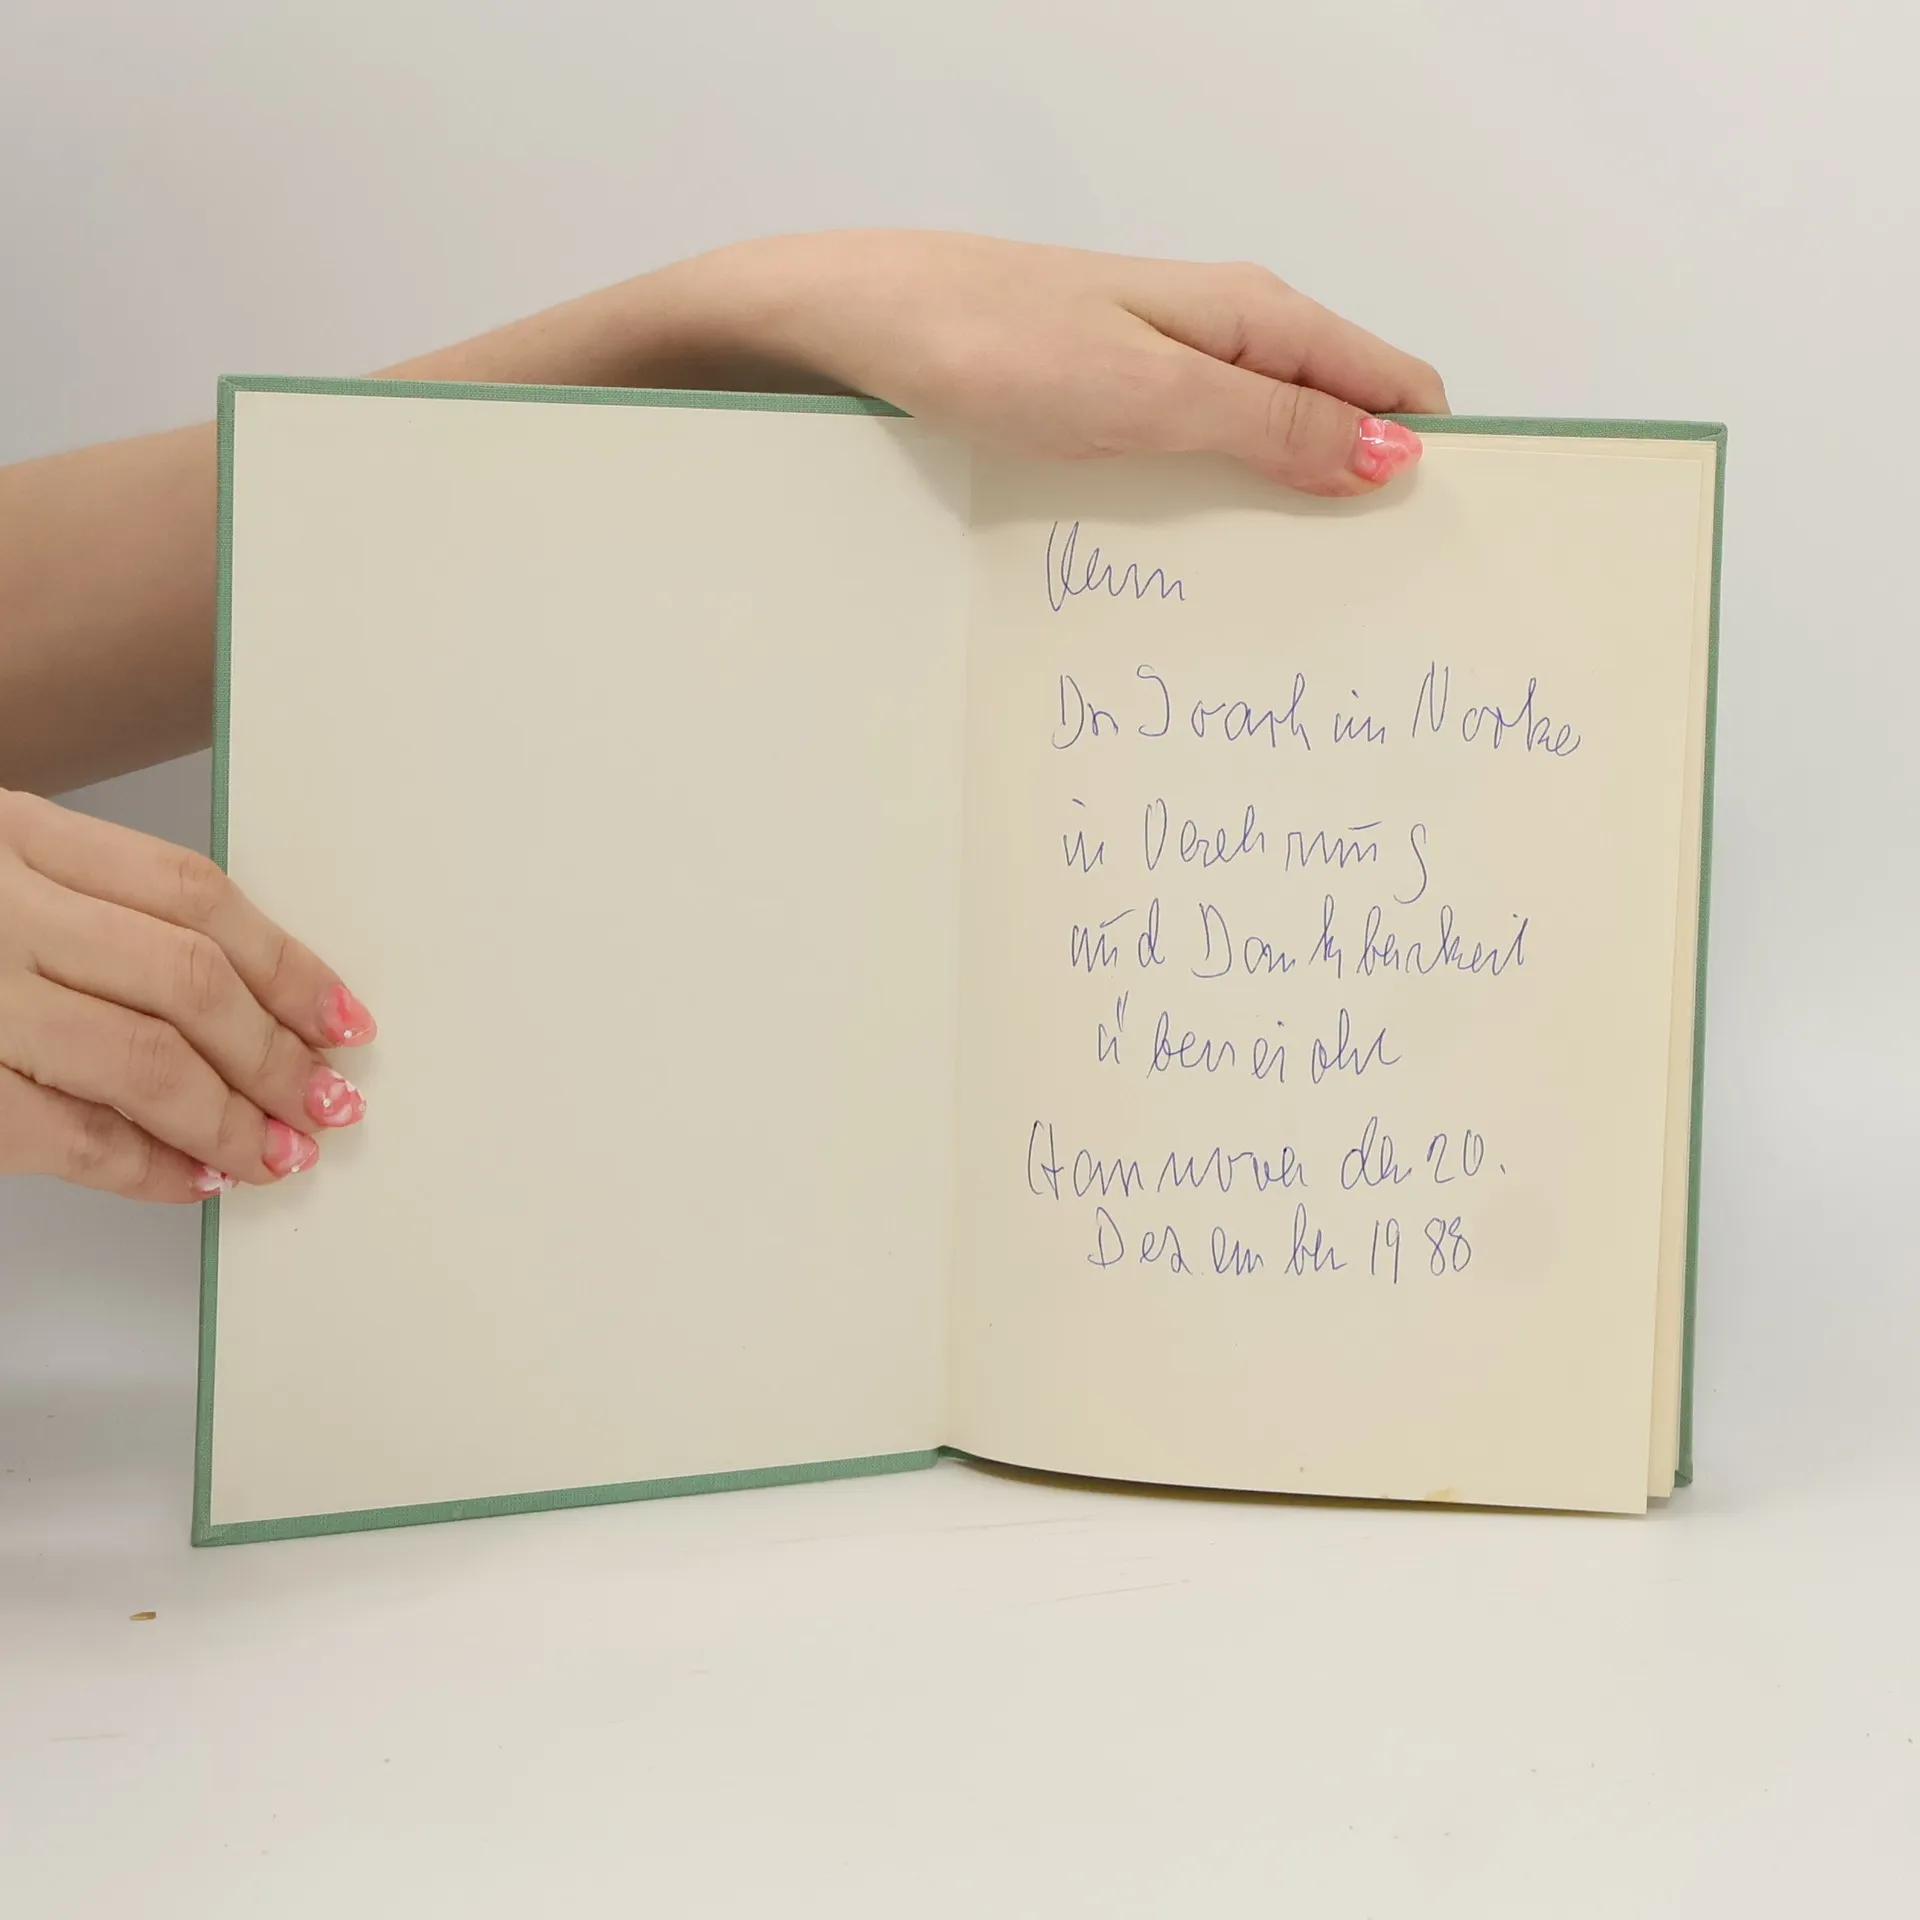 Herrn
Dr Joachim Nocke
in Verehrung
und Dankbarkeit
überreicht
Hannover den 20.
Dezember 1988